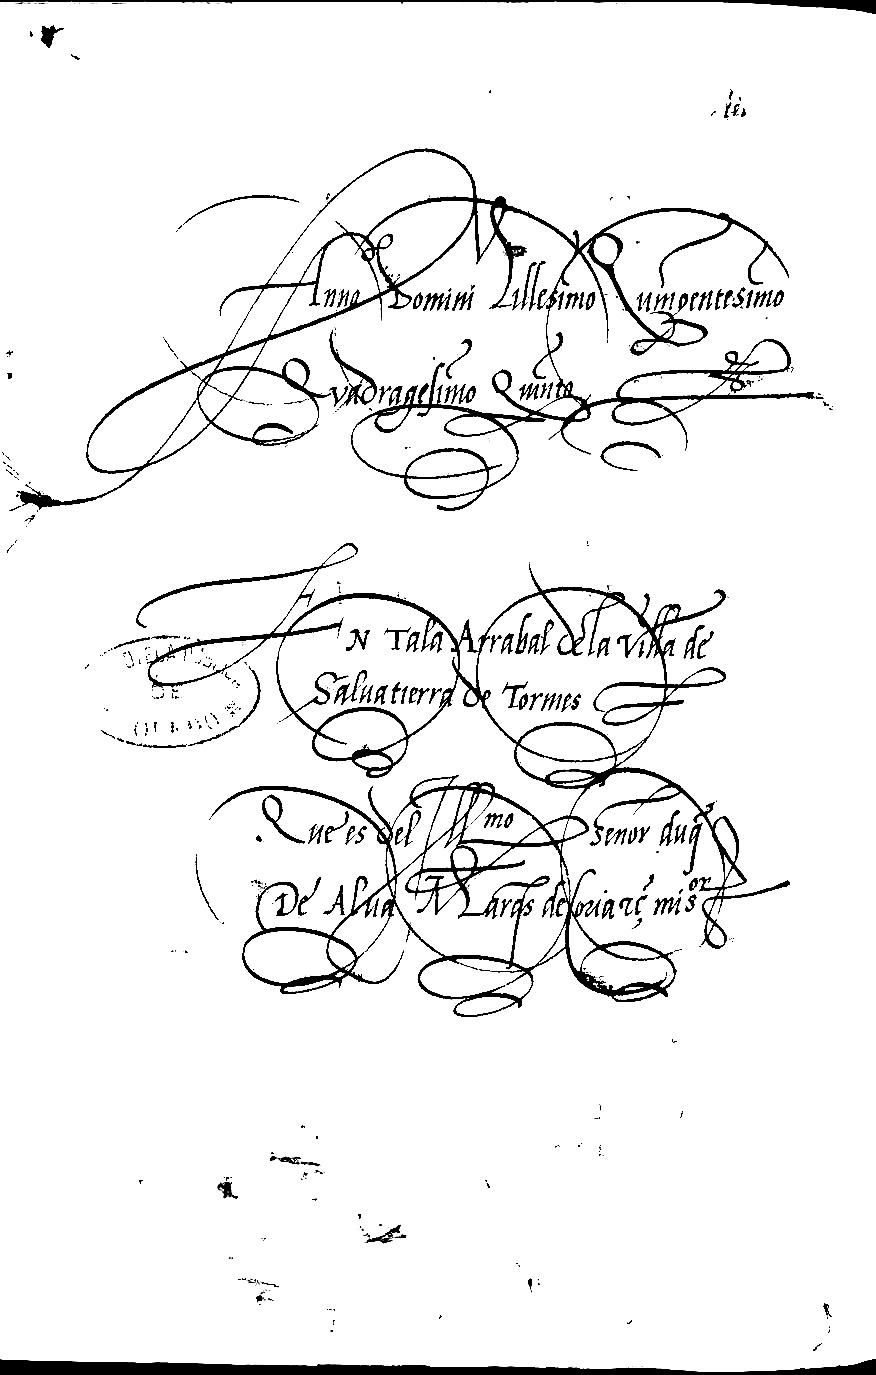 Anno Domini Millesimo Quinoentesimo
Quadragesimo Quinto
EN Tala Arrabal de la Villa de
Saluatierra de Tormes
Que es del Illmo señor duq̃
De Alua mi sor